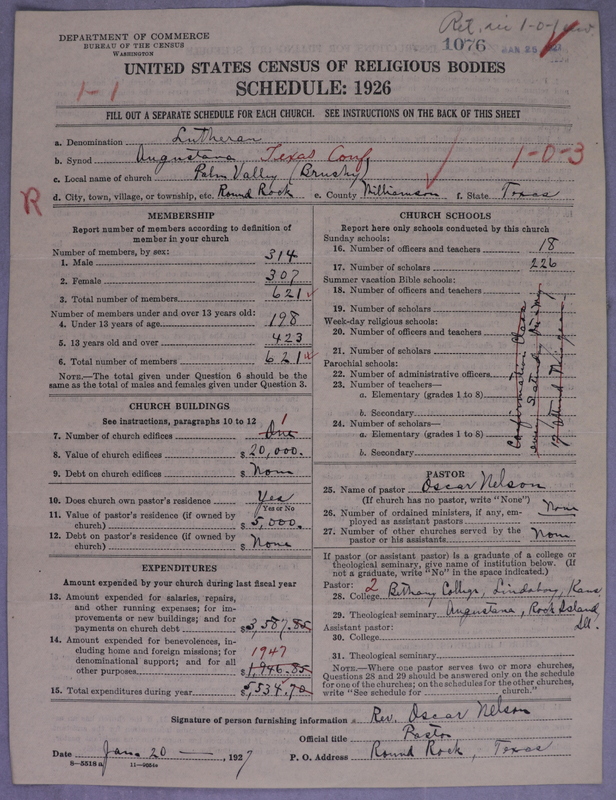 Ret. in 1-0-1
DEPARTMENT OF COMMERCE
BUREAU OF THE CENSUS
WASHINGTON
1076
JAN 25
UNITED STATES CENSUS OF RELIGIOUS BODIES
SCHEDULE: 1926
1-1
FILL OUT A SEPARATE SCHEDULE FOR EACH CHURCH. SEE INSTRUCTIONS ON THE BACK OF THIS SHEET
a. Denomination Lutheran
b. Synod Augustana, Texas Conf. 1-0-3
c. Local name of church Palm Valley (Brushy)
d. City, town, village, or township, etc. Round Rock e. County Williamson f. State Texas
R
MEMBERSHIP
Report number of members according to definition of
member in your church
Number of members, by sex:
1. Male 314
2. Female 307
3. Total number of members 621
Number of members under and over 13 years old:
4. Under 13 years of age 198
5. 13 years old and over 423
6. Total number of members 621
NOTE.—The total given under Question 6 should be
the same as the total of males and females given under Question 3.
CHURCH BUILDINGS
See instructions, paragraphs 10 to 12
7. Number of church edifices One 1
8. Value of church edifices $20,000.
9. Debt on church edifices $ None
10. Does church own pastor's residence Yes
Yes or No
11. Value of pastor's residence (if owned by
church) $5,000.
12. Debt on pastor's residence (if owned by
church) $ None
EXPENDITURES
Amount expended by your church during last fiscal year
13. Amount expended for salaries, repairs,
and other running expenses; for im-
provements or new buildings; and for
payments on church debt $3,587.85
14. Amount expended for benevolences, in-
cluding home and foreign missions; for
denominational support; and for all
other purposes 1947 $1,946.85
15. Total expenditures during year $5,534.70
CHURCH SCHOOLS
Report here only schools conducted by this church
Sunday schools:
16. Number of officers and teachers 18
17. Number of scholars 226
Summer vacation Bible schools:
18. Number of officers and teachers
19. Number of scholars
Week-day religious schools:
20. Number of officers and teachers
21. Number of scholars
Parochial schools:
22. Number of administrative officers
23. Number of teachers—
a. Elementary (grades 1 to 8)
b. Secondary
24. Number of scholars—
a. Elementary (grades 1 to 8)
b. Secondary
Confirmation Class
every Saturday
17 attend this year
PASTOR
25. Name of pastor Oscar Nelson
(If church has no pastor, write "None")
26. Number of ordained ministers, if any, em-
ployed as assistant pastors None
27. Number of other churches served by the
pastor or his assistants None
If pastor (or assistant pastor) is a graduate of a college or
theological seminary, give name of institution below. (If
not a graduate, write "No" in the space indicated.)
Pastor:
28. College 2 Bethany College, Lindsborg, Kans
29. Theological seminary Augustana, Rock Island, Ill.
Assistant pastor:
30. College
31. Theological seminary
NOTE.—Where one pastor serves two or more churches,
Questions 28 and 29 should be answered only on the schedule
for one of the churches; on the schedules for the other churches,
write "See schedule for church."
Signature of person furnishing information Rev. Oscar Nelson
Official title Pastor
Date Jan. 20, 1927 P. O. Address Round Rock, Texas
8—5518 a